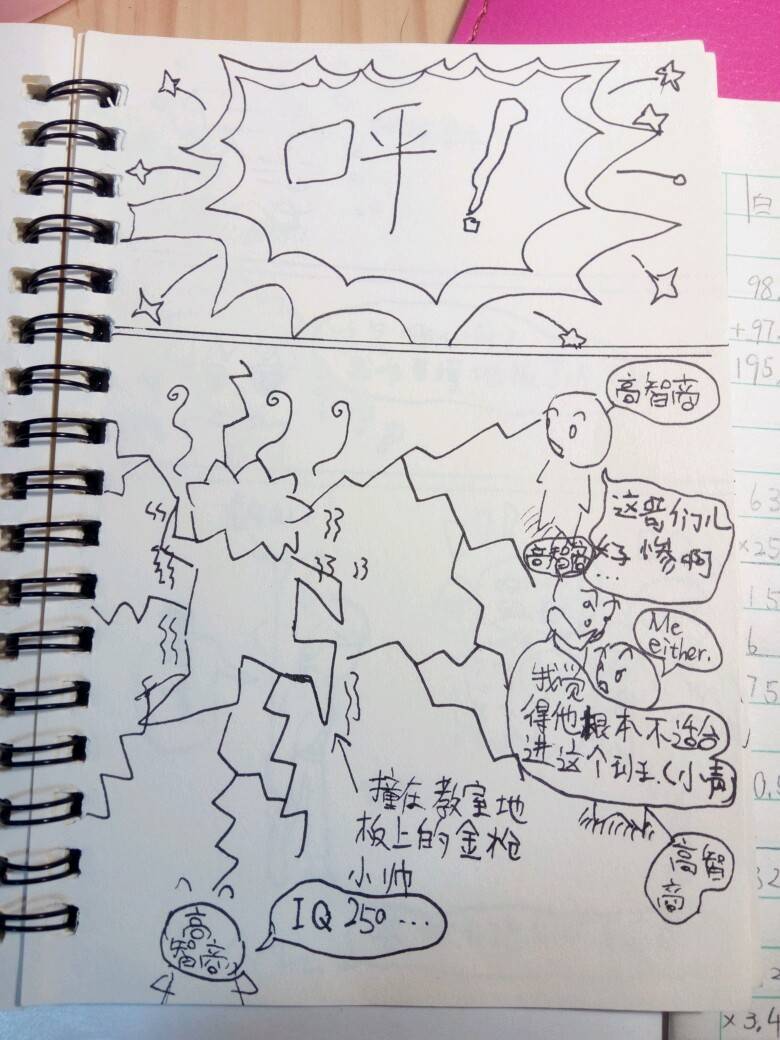 呼！
高智商
这哥们儿
好惨啊
...
高智商
Me
either.
我觉
得他根本不适合
进这个班.(小青)
撞在教室地
板上的金枪
小帅
高智
商
IQ 250...
高
智商
白
98
+97.
195.
63
×25
15
75
0.
32
×3.4